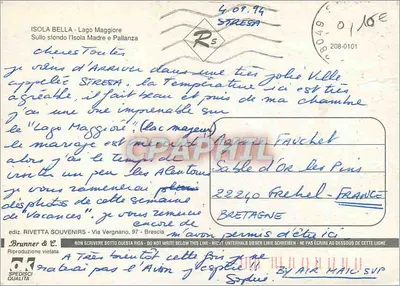 ISOLA BELLA - Lago Maggiore
Sullo sfondo l'Isola Madre e Pallanza
4.07.94
STRESA
Rs
28049 S
0,10€
208-0101
cheres Toutes
je viens d'Arriver dans une très jolie ville
appellée STRESA. la Température ici est très
agréable, il fait beau et puis de ma chambre
j'ai une vue imprenable sur
le "Lago Maggioré" (lac majeur)
le mariage est
alors j'ai le Temps de
visiter un peu les Alentours
je vous ramènerai plein
des photos de cette semaine
de "Vacances". je vous remercie
encore de
m'avoir permis d'être ici
A Très bientôt cette fois je ne
raterai pas l'Avion j'espère !!
Sophie
FAUCHET
Sable d'OR les Pins
22240 Frehel - FRANCE
BRETAGNE
BY AIR MAIL SVP
CPAPHIL
ediz. RIVETTA SOUVENIRS - Via Vergnano, 97 - Brescia
Brunner & C.
Riproduzione vietata
NON SCRIVERE SOTTO QUESTA RIGA - DO NOT WRITE BELOW THIS LINE - NICHT UNTERHALB DIESER LINIE SCHREIBEN - NE PAS ECRIRE AU DESSOUS DE CETTE LIGNE
SPEDISCI
QUALITÀ